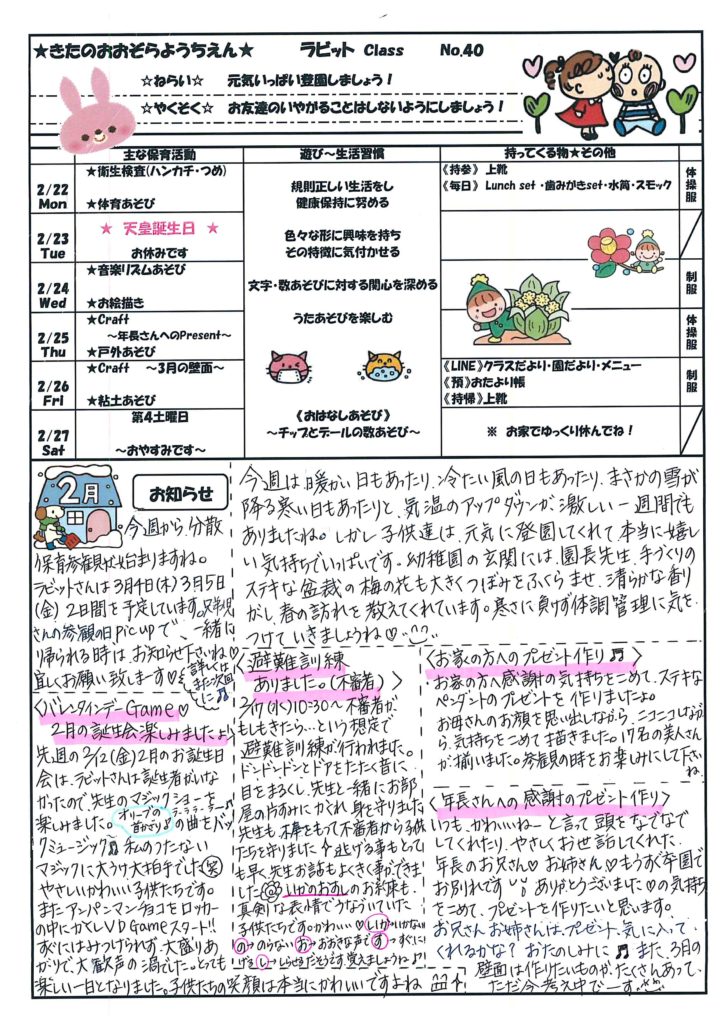 ★きたのおおぞらようちえん★ ラビット Class No.40
☆ねらい☆ 元気いっぱい登園しましょう！
☆やくそく☆ お友達のいやがることはしないようにしましょう！
主な保育活動 遊び～生活習慣 持ってくる物★その他
2/22 Mon
★衛生検査(ハンカチ・つめ)
★体育あそび
規則正しい生活をし
健康保持に努める
《持参》 上靴
《毎日》 Lunch set ・歯みがきset・水筒・スモック
体操服
2/23 Tue
★ 天皇誕生日 ★
お休みです
色々な形に興味を持ち
その特徴に気付かせる
2/24 Wed
★音楽リズムあそび
★お絵描き
文字・数あそびに対する関心を深める
制服
2/25 Thu
★Craft
～年長さんへのPresent～
★戸外あそび
うたあそびを楽しむ
体操服
2/26 Fri
★Craft ～3月の壁面～
★粘土あそび
《LINE》クラスだより・園だより・メニュー
《預》おたより帳
《持帰》上靴
制服
2/27 Sat
第4土曜日
～おやすみです～
《おはなしあそび》
～チップとデールの数あそび～
※ お家でゆっくり休んでね！
2月
お知らせ
今週から、分散
保育参観が始まりますね。
ラビットさんは3月4日(木)3月5日
(金)2日間を予定しています。兄弟
さんの参観の日pic upで、一緒に
帰られる時は、お知らせ下さいね♡
宜しくお願い致します♡
詳しくは
また次回
♬
今週は暖かい日もあったり、冷たい風の日もあったり、まさかの雪が
降る寒い日もあったりと、気温のアップダウンが、激しい一週間でも
ありましたね。しかし子供達は、元気に登園してくれて本当に嬉し
い気持ちでいっぱいです。幼稚園の玄関には、園長先生、手づくりの
ステキな盆栽の梅の花も大きくつぼみをふくらませ、清らかな香り
がし、春の訪れを教えてくれています。寒さに負けず体調管理に気を
つけていきましょうね♡
〈バレンタインデーGame♡
2月の誕生会楽しみましたよ〉
先週の2/12(金)2月のお誕生日
会は、ラビットさんは誕生者がいな
かったので、先生のマジックショーを
楽しみました。オリーブの首かざり♪の曲をバッ
クミュージック♬ 私のうたない
マジックに大うけ大拍手でした(笑)
やさしいかわいい子供たちです。
またアンパンマンチョコをロッカー
の中にかくしVD Gameスタート!!
すぐにはみつけられず、大盛りあ
がりで、大歓声の渦でした。とっても
楽しい一日となりました。子供たちの笑顔は本当にかわいいですよね
〈避難訓練
ありました。(不審者)〉
2/17(水)10:30～不審者が、
もしもきたら…という想定で
避難訓練が行われました。
ドンドンドンとドアをたたく音に
目をまるくし、先生と一緒にお部
屋の片すみにかくれ身を守りました。
先生も、棒をもって不審者から子供
たちを守りました
逃げる事もとて
も早く、先生のお話もよくきく事ができま
した◎いかのおすしのお約束も、
真剣な表情でうなずいていた
子供たちです。かわいい♡いか→いかない
の→のらない お→おおきな声で す→すぐに
げる し→しらせるだそうです。覚えましょうね♪
〈お家の方へのプレゼント作り♬〉
お家の方へ感謝の気持ちをこめて、ステキな
ペンダントのプレゼントを作りましたよ。
お母さんのお顔を思い出しながら、ニコニコしなが
ら、気持ちをこめて描きました。17名の美人さん
が揃いました。参観の時をお楽しみにして下さい
ね
〈年長さんへの感謝のプレゼント作り〉
いつも、かわいいねーと言って頭をなでなで
してくれたり、やさしくお世話してくれた、
年長のお兄さん♡お姉さん♡もうすぐ卒園で
お別れです ありがとうございました♡の気持ち
をこめて、プレゼントを作りたいと思います。
お兄さんお姉さんは、プレゼント、気に入って
くれるかな? おたのしみに♬ また、3月の
壁面は作りたいものが、たくさんあって、
ただ今考え中でーす